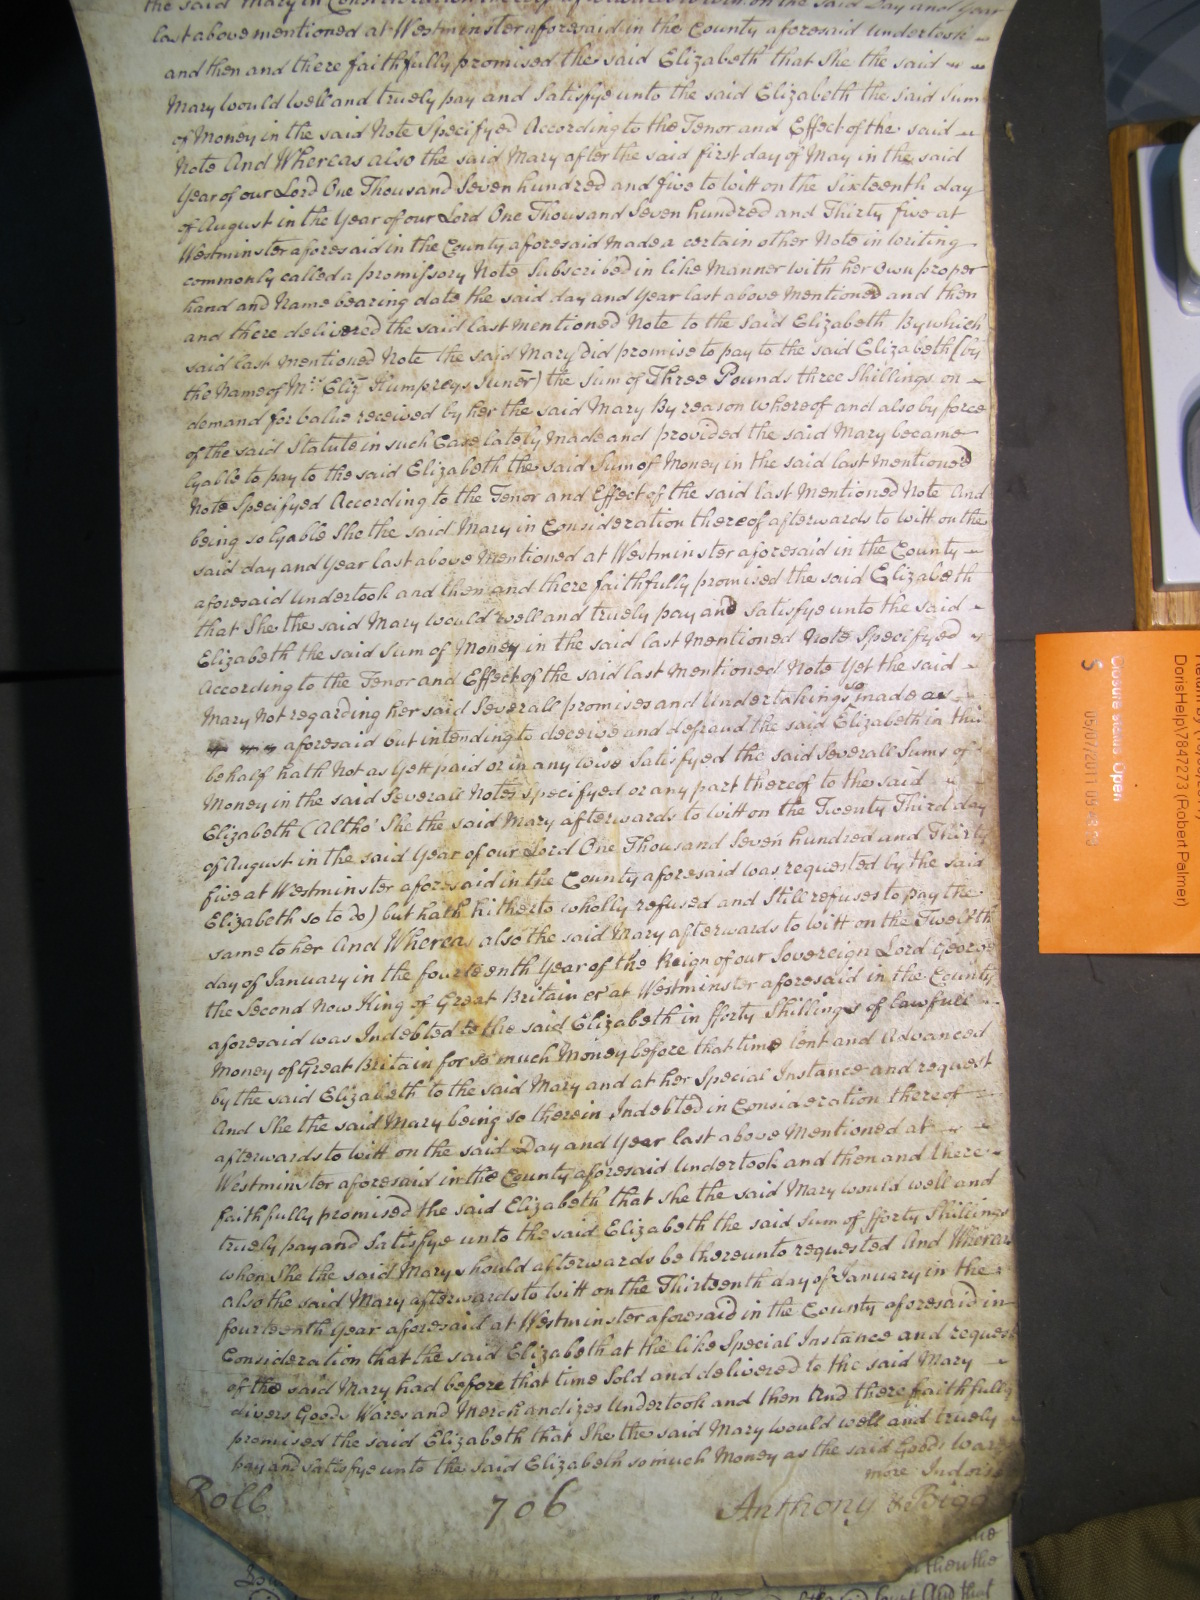 the said Mary in Consideration thereof afterwards to witt on the said Day and Year
last above mentioned at Westminster aforesaid in the County aforesaid undertook
and then and there faithfully promised the said Elizabeth that She the said
Mary would well and truely pay and Satisfye unto the said Elizabeth the said Sum
of Money in the said Note Specifyed According to the Tenor and Effect of the said
Note And Whereas also the said Mary after the said first day of May in the said
Year of our Lord One Thousand Seven hundred and five to witt on the Sixteenth day
of August in the Year of our Lord One Thousand Seven hundred and Thirty five at
Westminster aforesaid in the County aforesaid made a certain other Note in writing
commonly called a promissory Note Subscribed in like Manner with her own proper
hand and Name bearing date the said day and Year last above Mentioned and then
and there delivered the said last mentioned Note to the Said Elizabeth By which
said last Mentioned Note the said Mary did promise to pay to the said Elizabeth (by
the Name of Mrs Eliz Humpreys Junr) the Sum of Three Pounds three Shillings on
demand for value received by her the said Mary By reason whereof and also by force
of the said Statute in such Case lately made and provided the said Mary became
lyable to pay to the said Elizabeth the said Sum of Money in the said last mentioned
Note Specifyed According to the Tenor and Effect of the said last Mentioned Note And
being so lyable She the said Mary in Consideration thereof afterwards to witt on the
said day and Year last above Mentioned at Westminster aforesaid in the County
aforesaid undertook and then and there faithfully promised the said Elizabeth
that She the said Mary would well and truely pay and Satisfye unto the said
Elizabeth the said Sum of Money in the said last Mentioned Note Specifyed
According to the Tenor and Effect of the said last Mentioned Note Yet the said
Mary Not regarding her said Severall promises and Undertakings so made as
aforesaid but intending to deceive and defraud the said Elizabeth in this
behalf hath Not as Yett paid or in any wise Satisfyed the said Severall Sums of
Money in the said Severall Notes specifyed or any part thereof to the said
Elizabeth (Altho' She the said Mary afterwards to witt on the Twenty Third day
of August in the said Year of our Lord One Thousand Seven hundred and Thirty
five at Westminster aforesaid in the County aforesaid was requested by the said
Elizabeth so to do) but hath hitherto wholly refused and Still refuses to pay the
same to her And Whereas also the said Mary afterwards to witt on the Twelfth
day of January in the fourteenth Year of the Reign of our Sovereign Lord George
the Second Now King of Great Britain &c at Westminster aforesaid in the County
aforesaid was Indebted to the said Elizabeth in fforty Shillings of lawfull
Money of Great Britain for so much Money before that time lent and Advanced
by the said Elizabeth to the said Mary and at her Special Instance and request
And She the said Mary being so therein Indebted in Consideration thereof
afterwards to witt on the said Day and Year last above Mentioned at
Westminster aforesaid in the County aforesaid Undertook and then and there
faithfully promised the said Elizabeth that She the said Mary would well and
truely pay and Satisfye unto the said Elizabeth the said Sum of fforty Shillings
when She the said Mary should afterwards be thereunto requested And Whereas
also the said Mary afterwards to witt on the Thirteenth day of January in the
fourteenth Year aforesaid at Westminster aforesaid in the County aforesaid in
Consideration that the said Elizabeth at the like Special Instance and request
of the said Mary had before that time Sold and delivered to the said Mary
divers Goods Wares and Merchandizes Undertook and then And there faithfully
promised the said Elizabeth that She the said Mary would well and truely
pay and Satisfye unto the said Elizabeth so much Money as the said Goods Wares
more Indors
Roll 706 Anthony & Bigg
then the
Court And that
Closure status Open
5 05/07/2011
DorisHelp\7847273 (Robert Palmer)